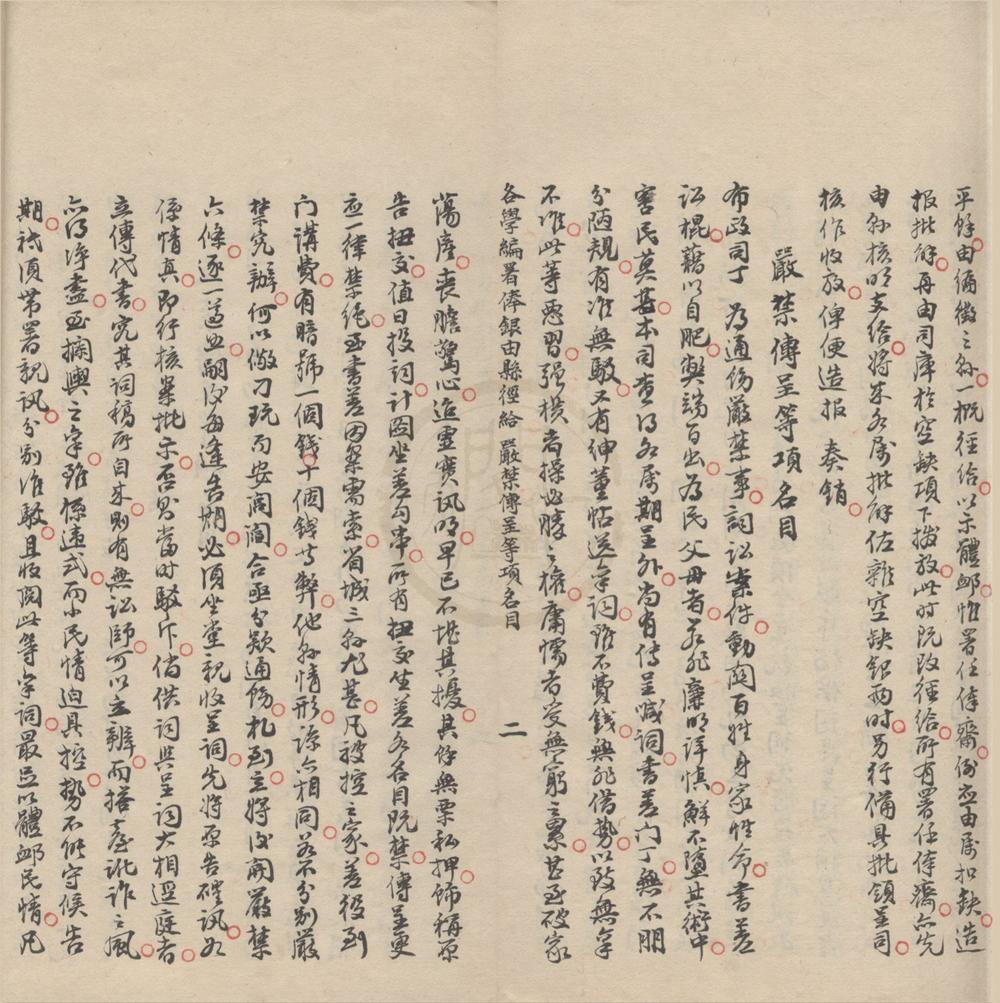 平餘由徧徵之縣一概徑給以示體邮惟署任俸齋例应由屬扣缺造
报批解再由司庫於空缺項下撥放此时既改徑給所有署任俸齋亦先
由縣核明支給将来各屬批解佐雜空缺銀两时另行備具批領呈司
核作收放俾便造报 奏銷
嚴禁傳呈等項名目
布政司丁 為通飭嚴禁事詞訟案件動関百姓身家性命書差
訟棍藉以自肥弊端百出為民父母者若非廉明詳慎鮮不墮其術中
害民莫甚本司查得各属期呈外尚有傳呈喊词書差门丁無不朋
分陋規有准無駁又有绅董帖送字词雖不費钱無非借势以致無字
不准此等恶習强横者操必勝之權庸懦者受無窮之累甚至破家
各學編署俸銀由縣徑給 嚴禁傳呈等項名目 二
蕩產丧膽驚心迨靈實讯明早已不堪其擾其餘無票私押飾稱原
告扭交值日投词計图坐差勾串所有扭交坐差各名目既禁傳呈更
应一律禁绝至書差因案需索省城三縣尤甚凡被控之家差役到
门講費有暗號一個錢十個錢等弊他縣情形谅亦相同若不分别嚴
禁究辦何以儆刁玩而安閭閻合亟分欵通飭札到立将後開嚴禁
六條逐一遵照嗣後每逢告期必須坐堂親收呈词先将原告確讯如
係情真即行核案批示否則當时駁斥倘供词與呈词大相逕庭者
立傳代書究其词稿所自来则有無訟師可以立辨而搭臺訛诈之風
亦得净盡至攔輿之字雖係違式而小民情迫具控势不能守候告
期祇須带署親讯分别准駁且收阅此等字词最足以體邮民情凡